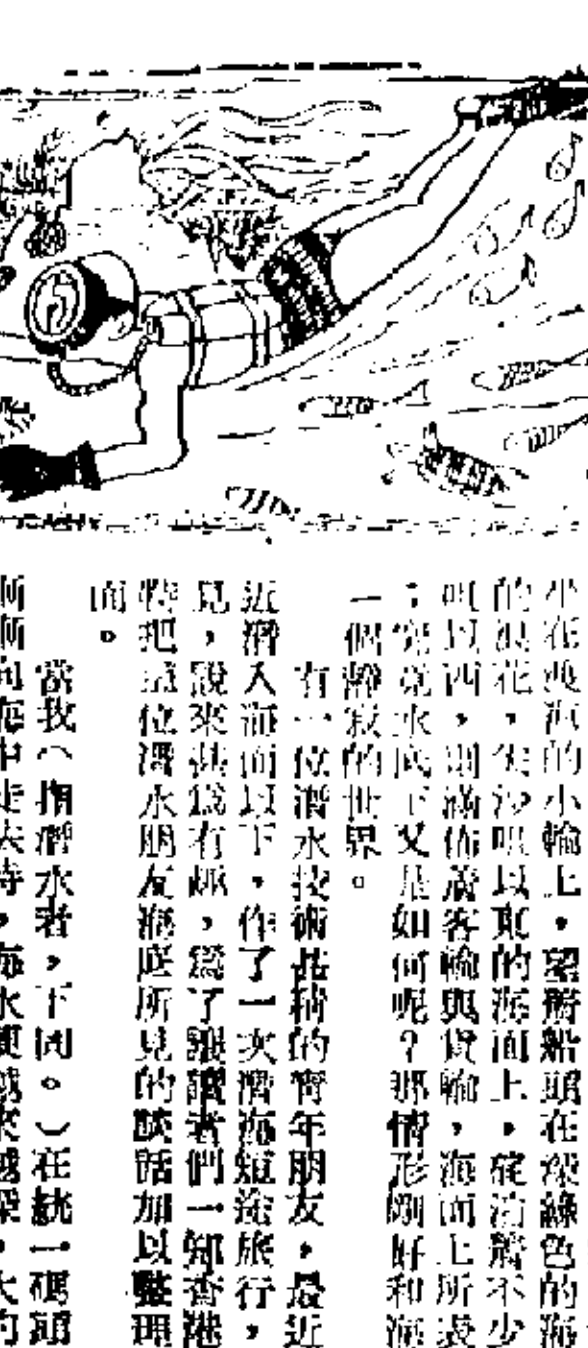 坐在與海的小輪上，望着船頭在深綠色的海
的浪花，尖沙咀以東的海面上，碇泊着不少
咀以西，則滿佈着客輪與貨輪，海面上所表
；究竟水底下又是如何呢？那情形剛好和海
一個靜寂的世界。
有一位潛水技術甚精的青年朋友，最近
近潛入海面以下，作了一次潛海短途旅行，
見，說來甚爲有趣，爲了讓讀者們一知香港
特把這位潛水朋友海底所見的談話加以整理
面。
當我（指潛水者，下同。）在統一碼頭
漸漸向海中走去時，海水便越來越深，大約